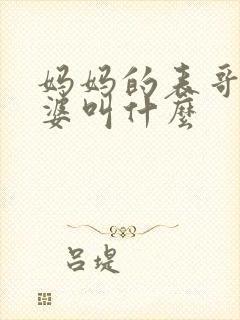 妈妈的表哥
婆叫什麼
吕堤